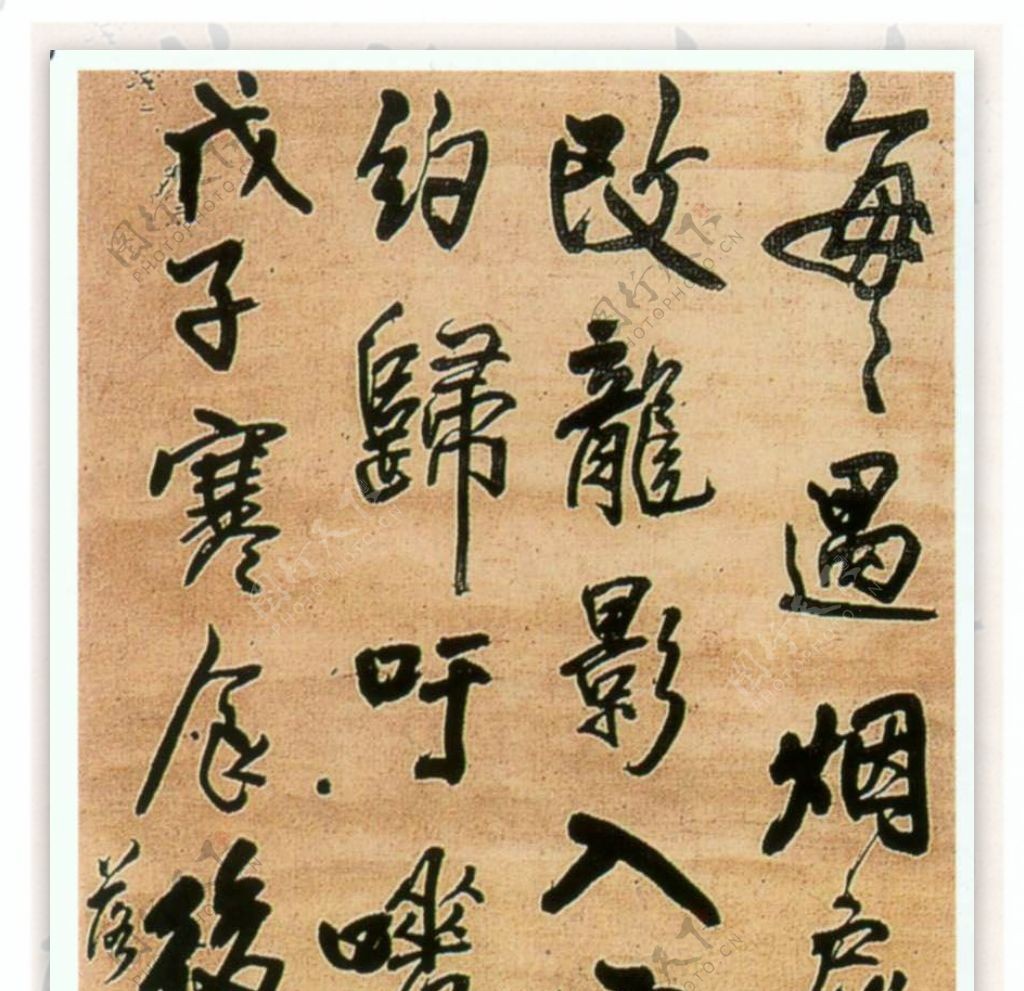 每遇烟
改龍影入
約歸吁嗟
戊子寒食後
落
图行天下 PHOTOPHOTO.CN